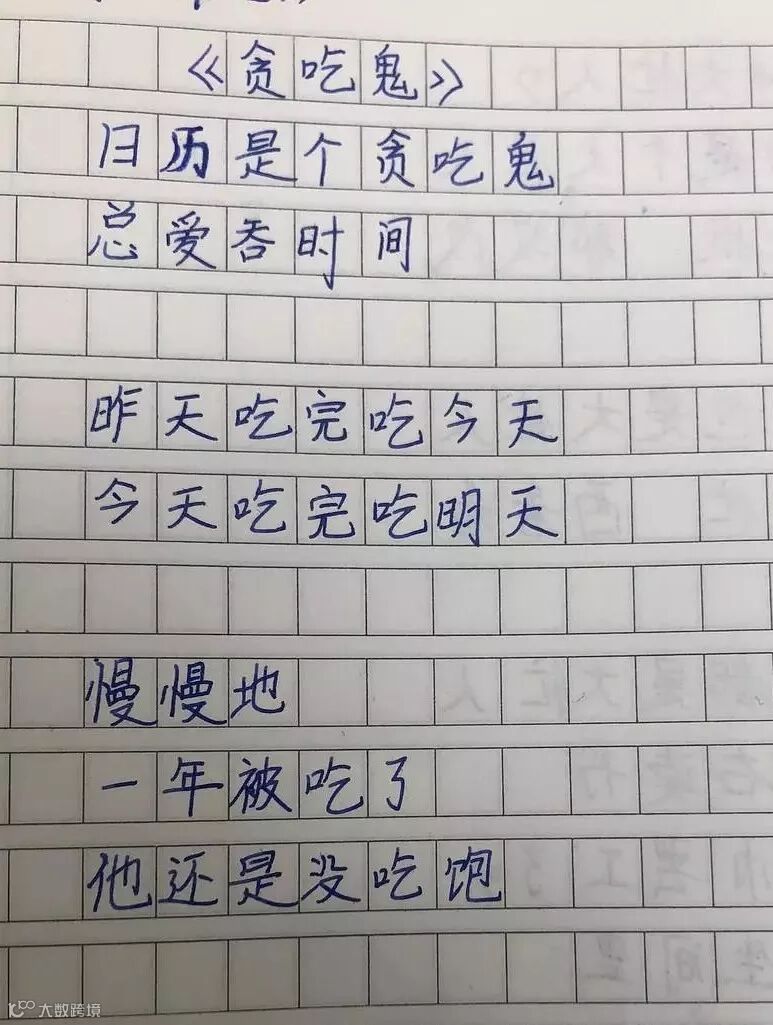 《贪吃鬼》
日历是个贪吃鬼
总爱吞时间
昨天吃完吃今天
今天吃完吃明天
慢慢地
一年被吃了
他还是没吃饱
大数跨境